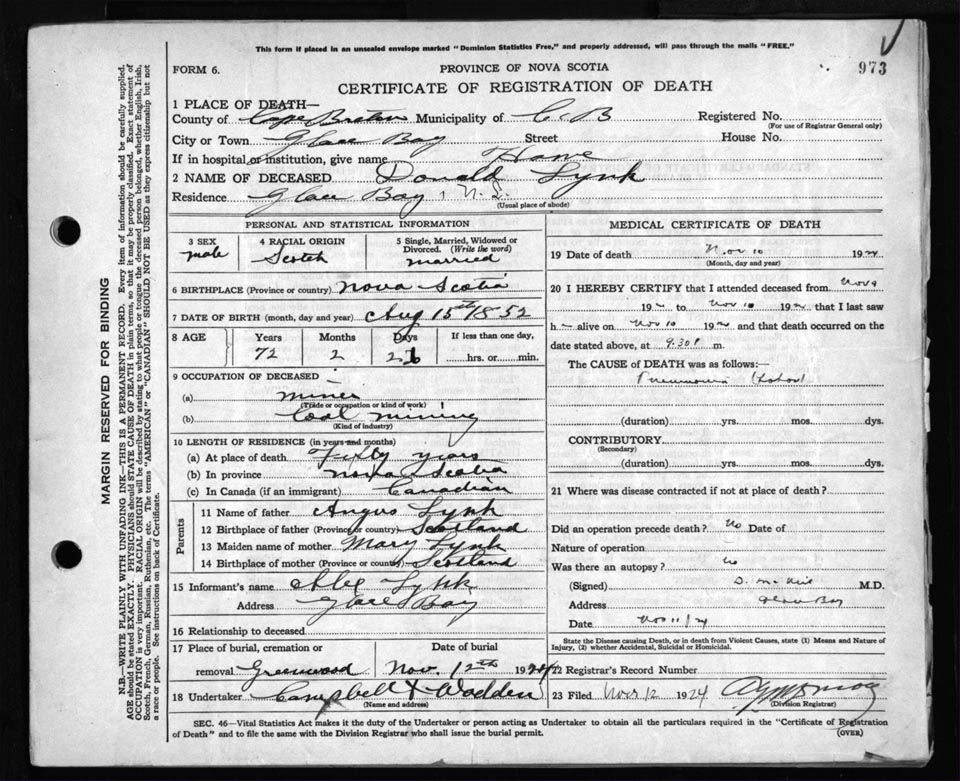 This form if placed in an unsealed envelope marked "Dominion Statistics Free," and properly addressed, will pass through the mails "FREE."
973
FORM 6.
PROVINCE OF NOVA SCOTIA
CERTIFICATE OF REGISTRATION OF DEATH
1 PLACE OF DEATH—
County of Cape Breton Municipality of C. B Registered No.
(For use of Registrar General only)
City or Town Glace Bay Street House No.
If in hospital or institution, give name Home
2 NAME OF DECEASED Donald Lynk
Residence Glace Bay, N. S.
(Usual place of abode)
PERSONAL AND STATISTICAL INFORMATION
3 SEX male
4 RACIAL ORIGIN Scotch
5 Single, Married, Widowed or Divorced. (Write the word) married
6 BIRTHPLACE (Province or country) Nova Scotia
7 DATE OF BIRTH (month, day and year) Aug 15th 1852
8 AGE Years Months Days If less than one day,
72 2 26 hrs. or min.
9 OCCUPATION OF DECEASED
(a) miner
(Trade or occupation or kind of work)
(b) Coal mining
(Kind of industry)
10 LENGTH OF RESIDENCE (in years and months)
(a) At place of death Fifty years
(b) In province Nova Scotia
(c) In Canada (if an immigrant) Canadian
Parents
11 Name of father Angus Lynk
12 Birthplace of father (Province or country) Scotland
13 Maiden name of mother Mary Lynk
14 Birthplace of mother (Province or country) Scotland
15 Informant's name Alex Lynk
Address Glace Bay
16 Relationship to deceased
17 Place of burial, cremation or Date of burial
removal Greenwood Nov. 12th 1924
18 Undertaker Campbell & Wadden
(Name and address)
MEDICAL CERTIFICATE OF DEATH
19 Date of death Nov 10 192
(Month, day and year)
20 I HEREBY CERTIFY that I attended deceased from Nov 9
192 to Nov 10 192 that I last saw
h alive on Nov 10 192 and that death occurred on
the date stated above, at 9.30 P m.
The CAUSE of DEATH was as follows:—
Pneumonia (Lobar)
(duration) yrs. mos.
CONTRIBUTORY
(Secondary)
(duration) yrs. mos.
21 Where was disease contracted if not at place of death?
Did an operation precede death? No Date of
Nature of operation
Was there an autopsy? no
(Signed) M.D.
Address Glace Bay
Date Nov 11/24
State the Disease causing Death, or in death from Violent Causes, state (1) Means and Nature of
Injury, (2) whether Accidental, Suicidal or Homicidal.
22 Registrar's Record Number
23 Filed Nov 12 1924
(Division Registrar)
SEC. 46—Vital Statistics Act makes it the duty of the Undertaker or person acting as Undertaker to obtain all the particulars required in the "Certificate of Registration
of Death" and to file the same with the Division Registrar who shall issue the burial permit.
(OVER)
MARGIN RESERVED FOR BINDING
N.B.—WRITE PLAINLY WITH UNFADING INK—THIS IS A PERMANENT RECORD. Every item of information should be carefully supplied.
AGE should be stated EXACTLY. PHYSICIANS should STATE CAUSE OF DEATH in plain terms, so that it may be properly classified. Exact statement of
OCCUPATION is very important. RACIAL ORIGIN will be described by stating to what people or tongue the deceased person belonged, whether English, Irish,
Scotch, French, German, Russian, Ruthenian, etc. The terms "AMERICAN" or "CANADIAN" SHOULD NOT BE USED as they express citizenship but not
a race or people. See instructions on back of Certificate.